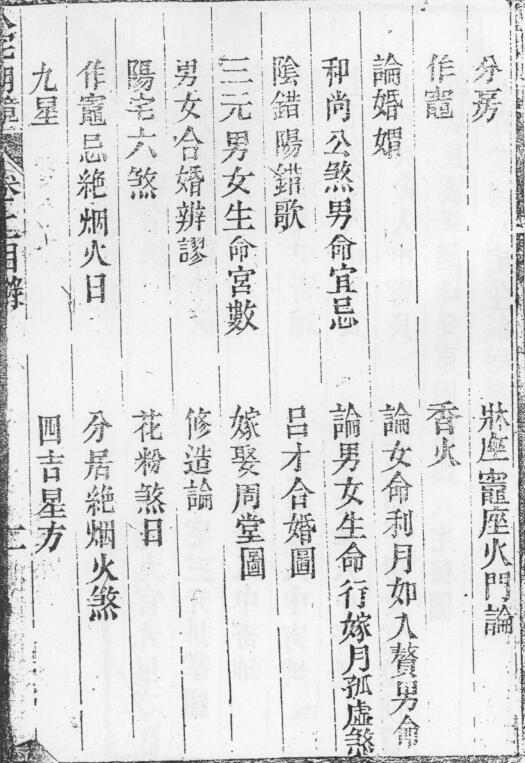 分房
牀座竈座火門論
作竈
香火
論婚媢
論女命利月如入贅男命
和尚公煞男命宜忌
論男女生命行嫁月孤虛煞
陰錯陽錯歌
呂才合婚圖
三元男女生命宮數
嫁娶周堂圖
男女合婚辨謬
修造論
陽宅六煞
花粉煞日
作竈忌絶烟火日
分居絶烟火煞
九星
四吉星方
八宅明鏡 卷 目錄